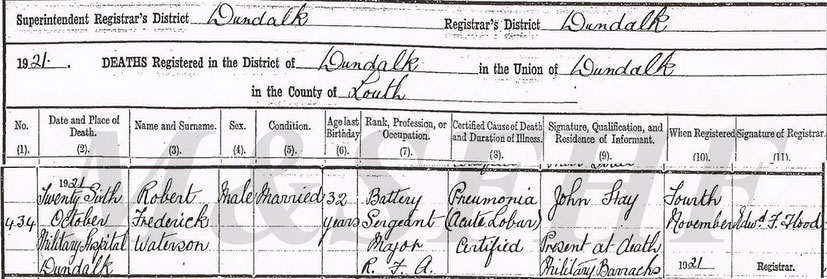 Superintendent Registrar's District Dundalk Registrar's District Dundalk
1921. DEATHS Registered in the District of Dundalk in the Union of Dundalk
in the County of Louth
No. Date and Place of Death. Name and Surname. Sex. Condition. Age last Birthday Rank, Profession, or Occupation. Certified Cause of Death and Duration of Illness. Signature, Qualification, and Residence of Informant. When Registered Signature of Registrar.
(1). (2). (3). (4). (5). (6). (7). (8). (9). (10). (11).
1921
Twenty Sixth Robert Male Married 32 Battery Pneumonia John Fourth
434 October Frederick years Sergeant (Acute Lobar) November Edwd. F. Flood
Military Hospital Waterson Major Certified Present at death
Dundalk R. F. A. Military Barracks 1921 Registrar.